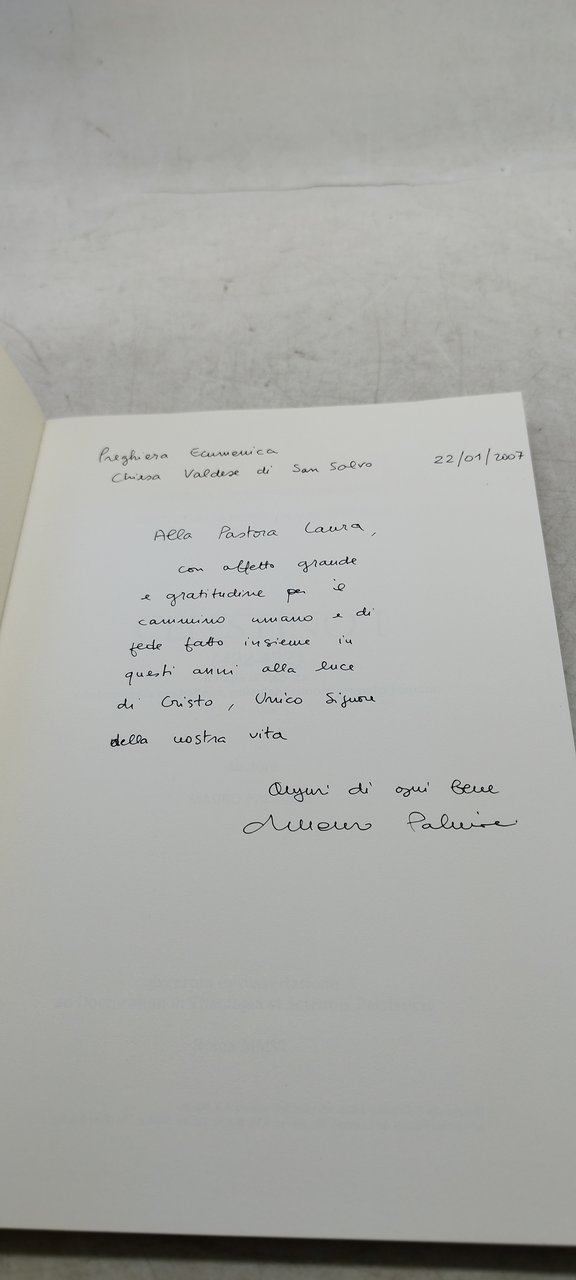 Preghiera Ecumenica
Chiesa Valdese di San Salvo
22/01/2007
Alla Pastora Laura,
con affetto grande
e gratitudine per il
cammino umano e di
fede fatto insieme in
questi anni alla luce
di Cristo, Unico Signore
della nostra vita
Auguri di ogni bene